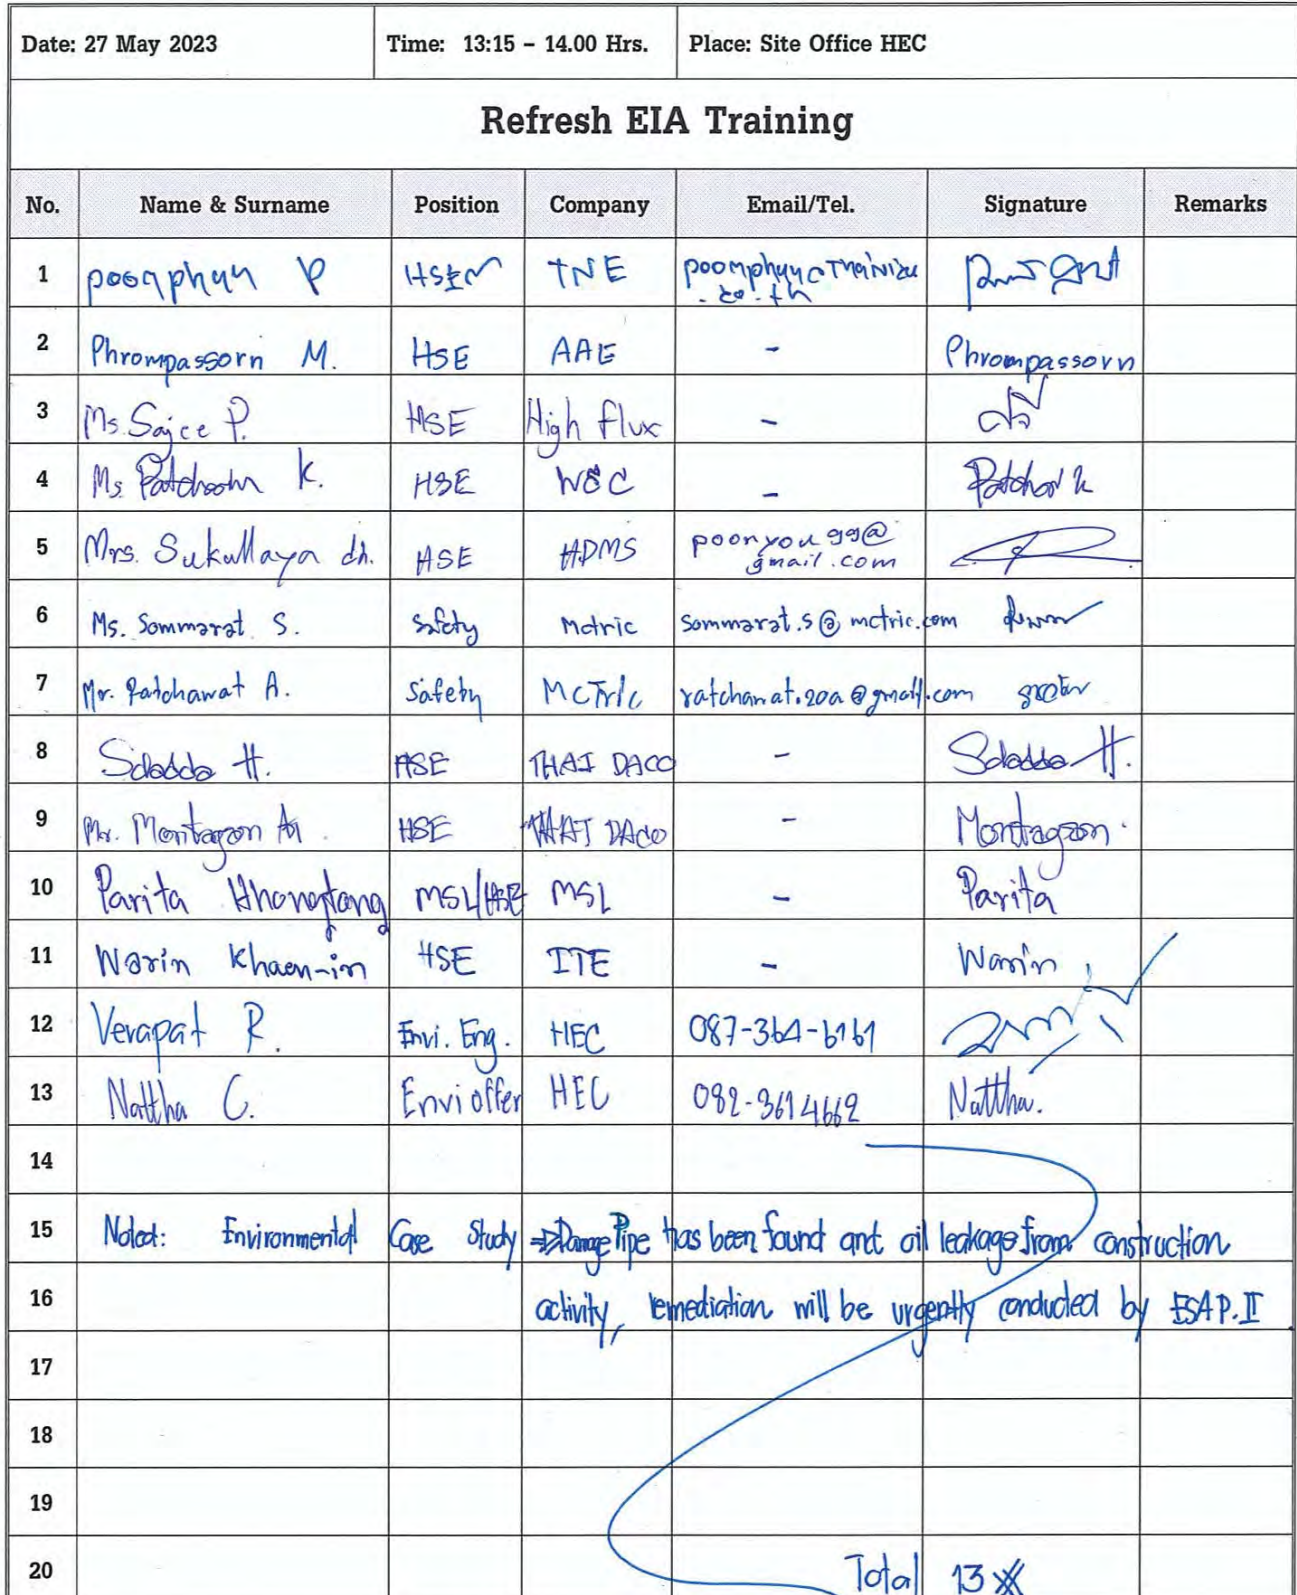 Date: 27 May 2023 Time: 13:15 - 14.00 Hrs. Place: Site Office HEC
Refresh EIA Training
No. Name & Surname Position Company Email/Tel. Signature Remarks
1 P TNE
2 Phrompassorn M. HSE AAE - Phrompassorn
3 Ms. Sajee P. HSE High flux -
4 Ms. K. HSE -
5 Mrs. Sukullaya ch. HSE HDMS poonyou99@
gmail.com
6 Ms. Sommarat S. safety Mctric sommarat.s@mctric.com
7 Mr. Ratchawat A. Safety McTric ratchawat.20a@gmail.com
8 H. HSE THAI DACO - H.
9 Mr. Montagson HSE THAI DACO - Montagson
10 Parita MSL/HSE MSL - Parita
11 Warin Khaen-in HSE ITE - Warin
12 Verapat R. Envi. Eng. HEC 087-364-6161
13 Nattha C. Envi offer HEC 082-3614662 Nattha.
14
15 Noted: Environmental Case Study ⇒ Damage Pipe has been found and oil leakage from construction
16 activity, remediation will be urgently conducted by ESAP.II
17
18
19
20 Total 13